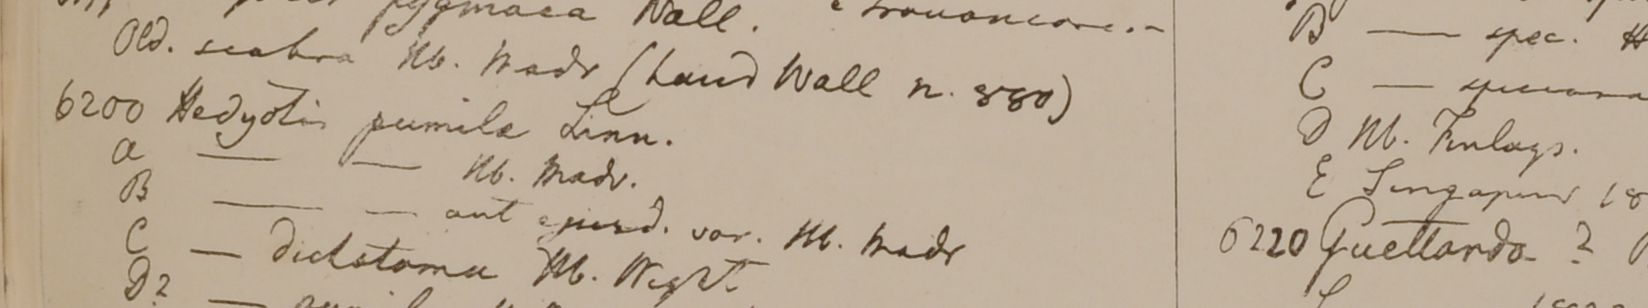 pygmaea Wall.
Old. scabra Hb. Madr (haud Wall n. 880)
6200 Hedyotis pumila Linn.
a — — Hb. Madr.
B — — aut ejusd. var. Hb. Madr
C — dichotoma Hb. Wight
D? —
B — spec.
C —
D Hb. Finlays.
E Singapur 18
6220 Guettarda ?